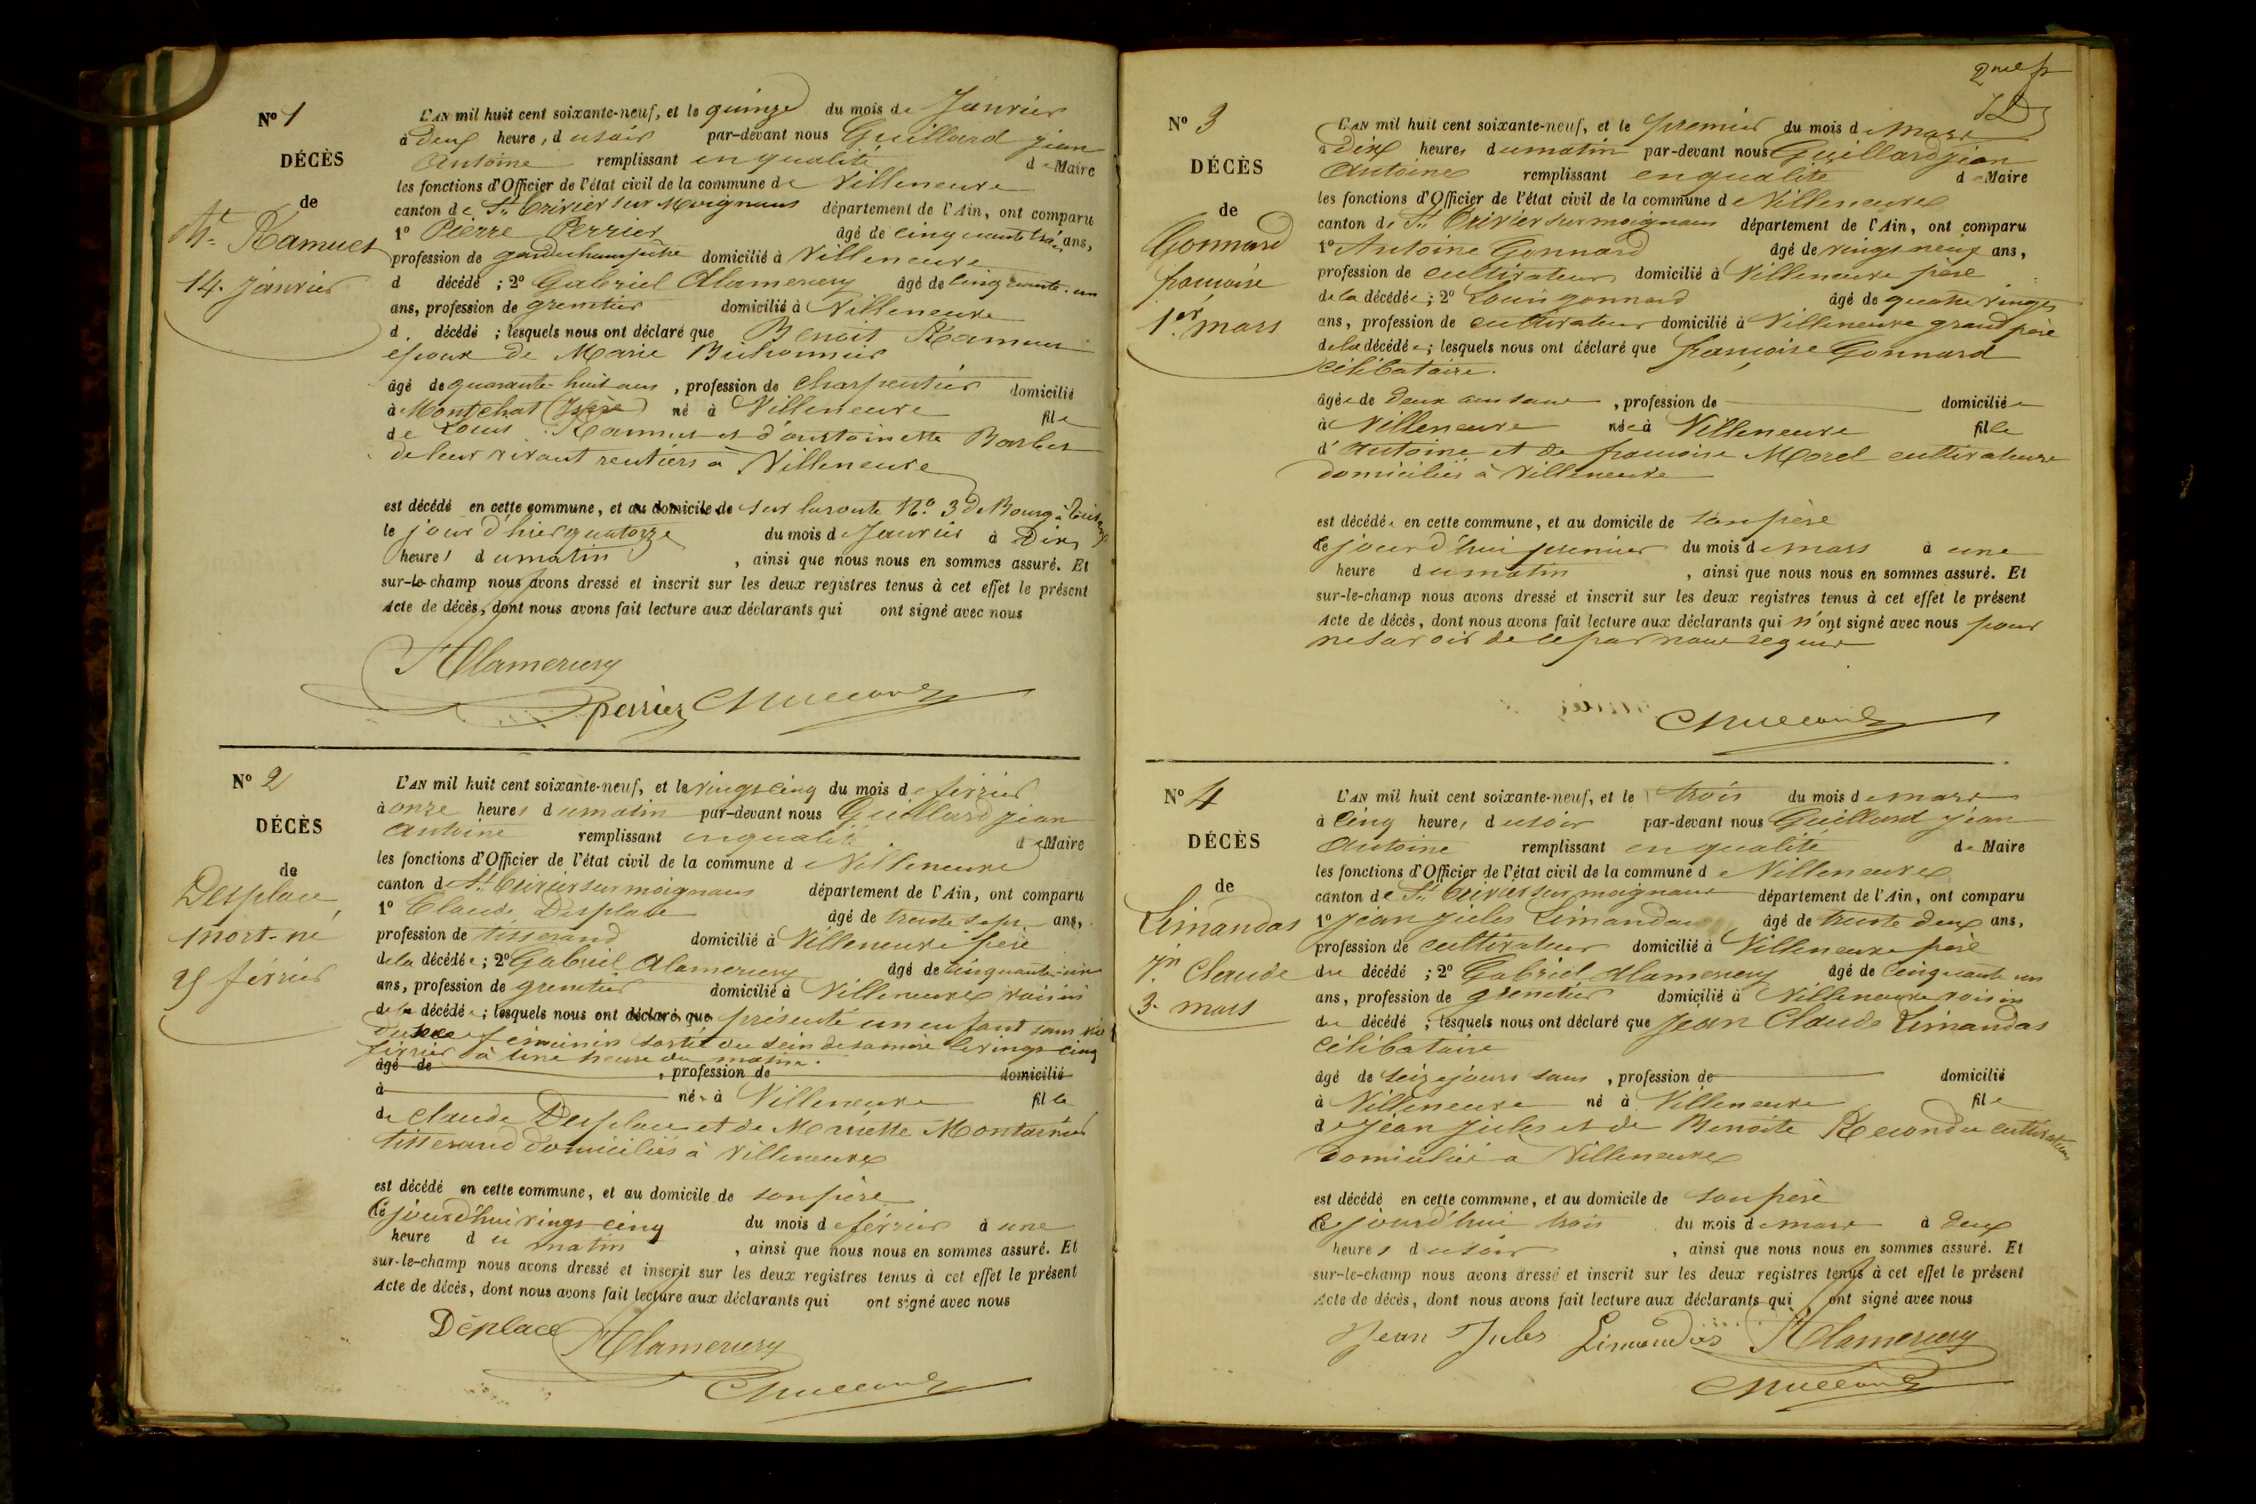 Nº 1
DÉCÈS
de
Ramuet
14. janvier
L'AN mil huit cent soixante-neuf, et le quinze du mois de Janvier
à deux heure, du soir par-devant nous Guillard jean
Antoine remplissant en qualité de Maire
les fonctions d'Officier de l'état civil de la commune de Villeneuve
canton de St Trivier sur Moignans département de l'Ain, ont comparu
1º Pierre Perrier âgé de cinquante trois ans,
profession de garde champêtre domicilié à Villeneuve
d décédé ; 2º Gabriel Alamercery âgé de cinquante-un
ans, profession de grenetier domicilié à Villeneuve
d. décédé ; lesquels nous ont déclaré que Benoit Ramuet
époux de Marie
âgé de quarante-huit ans, profession de charpentier domicilié
à Montchat (Isère) né à Villeneuve fils
de Louis Ramuet et d'antoinette Barbet
de leur vivant rentiers à Villeneuve
est décédé en cette commune, et au domicile de sur la route Nº 3 de Bourg à
le jour d'hier quatorze du mois de Janvier à Dix
heures du matin, ainsi que nous nous en sommes assuré. Et
sur-le-champ nous avons dressé et inscrit sur les deux registres tenus à cet effet le présent
Acte de décès, dont nous avons fait lecture aux déclarants qui ont signé avec nous
Alamercery
perrier
Nº 2
DÉCÈS
de
Desplace
mort-né
25 février
L'AN mil huit cent soixante-neuf, et le vingt cinq du mois de février
à onze heures du matin par-devant nous Guillard jean
Antoine remplissant en qualité de Maire
les fonctions d'Officier de l'état civil de la commune de Villeneuve
canton de St Trivier sur moignans département de l'Ain, ont comparu
1º Claude Desplace âgé de trente sept ans,
profession de tisserand domicilié à Villeneuve père
de la décédée ; 2º Gabriel Alamercery âgé de cinquante-un
ans, profession de grenetier domicilié à Villeneuve voisin
de la décédée ; lesquels nous ont déclaré que présenté un enfant sans vie
du sexe féminin sorti du sein de sa mère le vingt cinq
février à une heure du matin.
âgé de , profession de domicilié
à née à Villeneuve fille
de claude Desplace et de Mariette
tisserand domiciliés à Villeneuve
est décédé en cette commune, et au domicile de son père
Ce jourd'hui vingt cinq du mois de février à une
heure du matin, ainsi que nous nous en sommes assuré. Et
sur-le-champ nous avons dressé et inscrit sur les deux registres tenus à cet effet le présent
Acte de décès, dont nous avons fait lecture aux déclarants qui ont signé avec nous
Déplace
Alamercery
2me f
Nº 3
DÉCÈS
de
Gonnard
francoise
1er mars
L'AN mil huit cent soixante-neuf, et le premier du mois de mars
à dix heures du matin par-devant nous Guillard jean
Antoine remplissant en qualité de Maire
les fonctions d'Officier de l'état civil de la commune de Villeneuve
canton de St Trivier sur moignans département de l'Ain, ont comparu
1º Antoine Gonnard âgé de vingt neuf ans,
profession de cultivateur domicilié à Villeneuve père
de la décédée ; 2º Louis gonnard âgé de quatre vingts
ans, profession de cultivateur domicilié à Villeneuve grand père
de la décédée ; lesquels nous ont déclaré que francoise Gonnard
célibataire.
âgée de deux ans, profession de domiciliée
à Villeneuve née à Villeneuve fille
d'Antoine et de francoise Morel cultivateurs
domiciliés à Villeneuve
est décédée en cette commune, et au domicile de son père
Ce jourd'hui premier du mois de mars à une
heure du matin, ainsi que nous nous en sommes assuré. Et
sur-le-champ nous avons dressé et inscrit sur les deux registres tenus à cet effet le présent
Acte de décès, dont nous avons fait lecture aux déclarants qui n'ont signé avec nous pour
ne savoir de ce par nous requis
Nº 4
DÉCÈS
de
Limandas
Jn Claude
3. mars
L'AN mil huit cent soixante-neuf, et le trois du mois de mars
à cinq heures du soir par-devant nous Guillard jean
Antoine remplissant en qualité de Maire
les fonctions d'Officier de l'état civil de la commune de Villeneuve
canton de St Trivier sur moignans département de l'Ain, ont comparu
1º jean jules Limandas âgé de trente deux ans,
profession de cultivateur domicilié à Villeneuve père
du décédé ; 2º Gabriel Alamercery âgé de cinquante un
ans, profession de grenetier domicilié à Villeneuve voisin
du décédé ; lesquels nous ont déclaré que Jean Claude Limandas
célibataire
âgé de seize jours, profession de domicilié
à Villeneuve né à Villeneuve fils
de jean jules et de Benoite cultivateurs
domiciliés à Villeneuve
est décédé en cette commune, et au domicile de son père
Ce jourd'hui trois du mois de mars à deux
heures du soir, ainsi que nous nous en sommes assuré. Et
sur-le-champ nous avons dressé et inscrit sur les deux registres tenus à cet effet le présent
Acte de décès, dont nous avons fait lecture aux déclarants qui ont signé avec nous
Jean Jules Limandas Alamercery